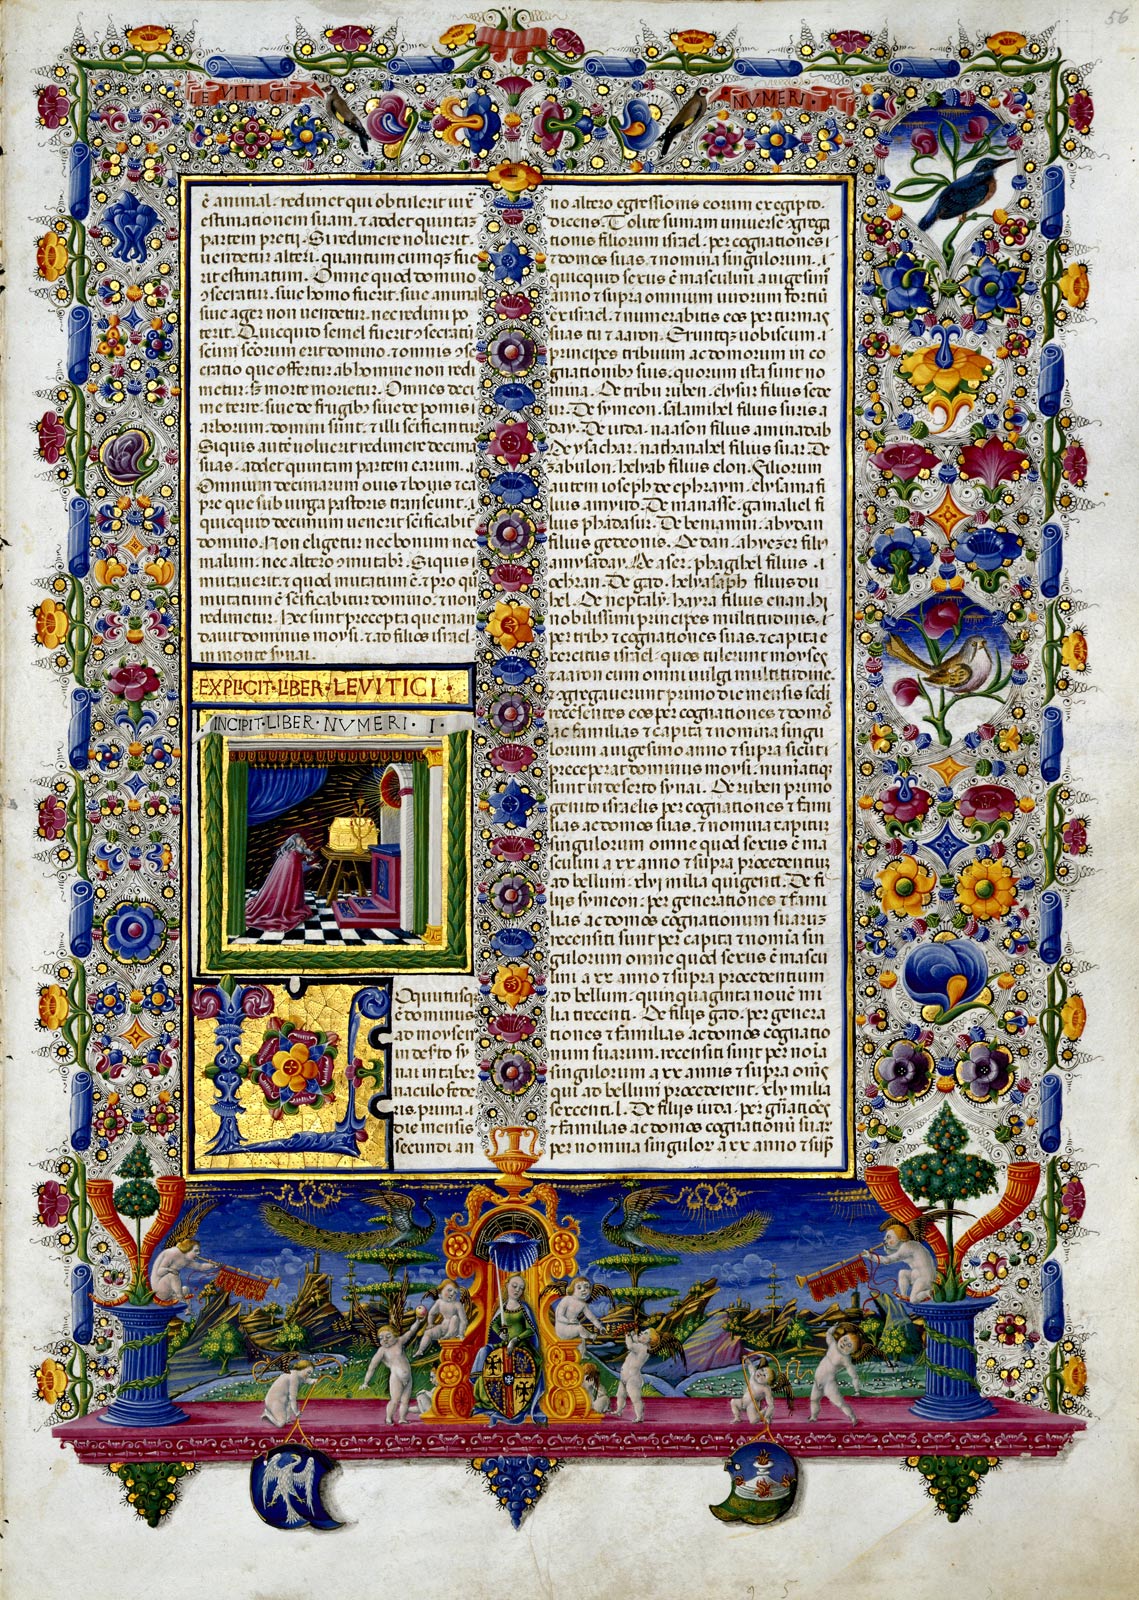 56
LEVITICI
NVMERI
ē animal· redimet qui obtulerit iux̄
estimationem suam· ⁊ addet quintaʒ
partem pretij· Si redimere noluerit·
uendetur alteri· quantum cumqʒ fue
rit estimatum· Omne quod domino
ꝯsecratur· siue homo fuerit· siue animal
siue ager non uendetur· nec redimi po
terit· Quicquid semel fuerit ꝯsecratū
scūm sc̄orum erit domino· ⁊ omnis ꝯse
cratio que offertur ab homine non redi
metur· sʒ morte morietur· Omnes deci
me terre· siue de frugibʒ siue de pomis
arborum· domini sunt· ⁊ illi scificantur
Siquis autē uoluerit redimere decimas
suas· addet quintam partem earum·
Omnium decimarum ouis ⁊ bouis ⁊ ca
pre que sub uirga pastoris transeunt·
quicquid decimum uenerit scificabit̄
domino· Non eligetur nec bonum nec
malum· nec altero ꝯmutabit̄· Siquis
mutauerit· ⁊ quod mutatum ē· ⁊ pro quo
mutatum ē scificabitur domino· ⁊ non
redimetur· Hec sunt precepta que man
dauit dominus moysi· ⁊ ad filios israel·
in monte synai·
EXPLICIT·LIBER·LEVITICI·
INCIPIT·LIBER·NVMERI·I·
L
Oquutusqʒ
ē dominus
ad moysen
in desto sy
nai in taber
naculo fede
ris· prima·
die mensis
secundi an
no altero egressionis eorum ex egipto·
dicens· Tolite sumam uniuerse ꝯgrega
tionis filiorum israel· per cognationes
⁊ domos suas· ⁊ nomina singulorum·
quicquid sexus ē masculini a uigesimo
anno ⁊ supra omnium uirorum fortiū
ex israel· ⁊ numerabitis eos per turmas
suas tu ⁊ aaron· Eruntqʒ uobiscum·
principes tribuum ac domorum in co
gnationibʒ suis· quorum ista sunt no
mina· De tribu ruben· elysur filius sede
ur· De symeon· salamihel filius suris a
day· De iuda· naason filius aminadab
De ysachar· nathanahel filius suar· De
zabulon· helyab filius elon· Filiorum
autem ioseph de ephraym· elysama fi
lius amyud· De manasse· gamaliel fi
lius phadasur· De beniamin· abydan
filius gedeonis· De dan· abyezer filiꝰ
amysaday· De aser· phagihel filius·
ochran· De gad· helyasaph filius du
hel· De neptaly· hayra filius enan· hi
nobilissimi principes multitudinis·
per tribꝰ ⁊ cognationes suas· ⁊ capita e
xercitus israel· quos tulerunt moyses
aaron cum omni uulgi multitudine·
⁊ ꝯgregauerunt primo die mensis scdi
recēsentes eos per cognationes ⁊ domos
ac familias· ⁊ capita ⁊ nomina singu
lorum a uigesimo anno ⁊ supra sicuti
preceperat dominus moysi· num̄atiqʒ
sunt in deserto synai· De ruben primo
genito israelis per cognationes ⁊ fami
lias ac domos suas· ⁊ nomina capitum
singulorum omne quod sexus ē mas
culini a xx anno ⁊ supra procedentium
ad bellum· xlvi milia quigenti· De fi
lijs symeon· per generationes ⁊ fami
lias ac domos cognationum suarum
recensiti sunt per capita ⁊ nomīa sin
gulorum omne quod sexus ē mascu
lini a xx anno ⁊ supra procedentium
ad bellum· quinquaginta nouē mi
lia trecenti· De filijs gad· per genera
tiones ⁊ familias ac domos cognatio
num suarum· recensiti sunt per noīa
singulorum a xx annis ⁊ supra omēs
qui ad bellum procederent· xlv milia
sexcenti l· De filijs iuda· per gn̄atiōes
⁊ familias ac domos cognationū suarum
per nomina singulor a xx anno ⁊ sup̄